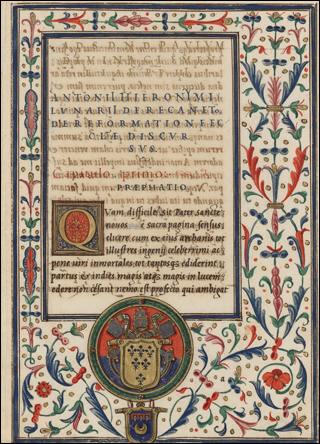 ANTONII HIERONIMI
LVNARII DE RECANETO
DE REFORMATION. ECC
CLE, DISCVR
SVS.
Capitulo primo:
PRÆPHATIO
QVam difficile sit Pater sancte
nouos è sacra pagina sensus
elicere, cum ex eius archanis tot
illustres ingenij celeberrimi ac
pene uiri immortales tot tantosq; ediderint
partus et indies magis atq; magis in lucem
edere non cessant nemo est profecto qui ambigat